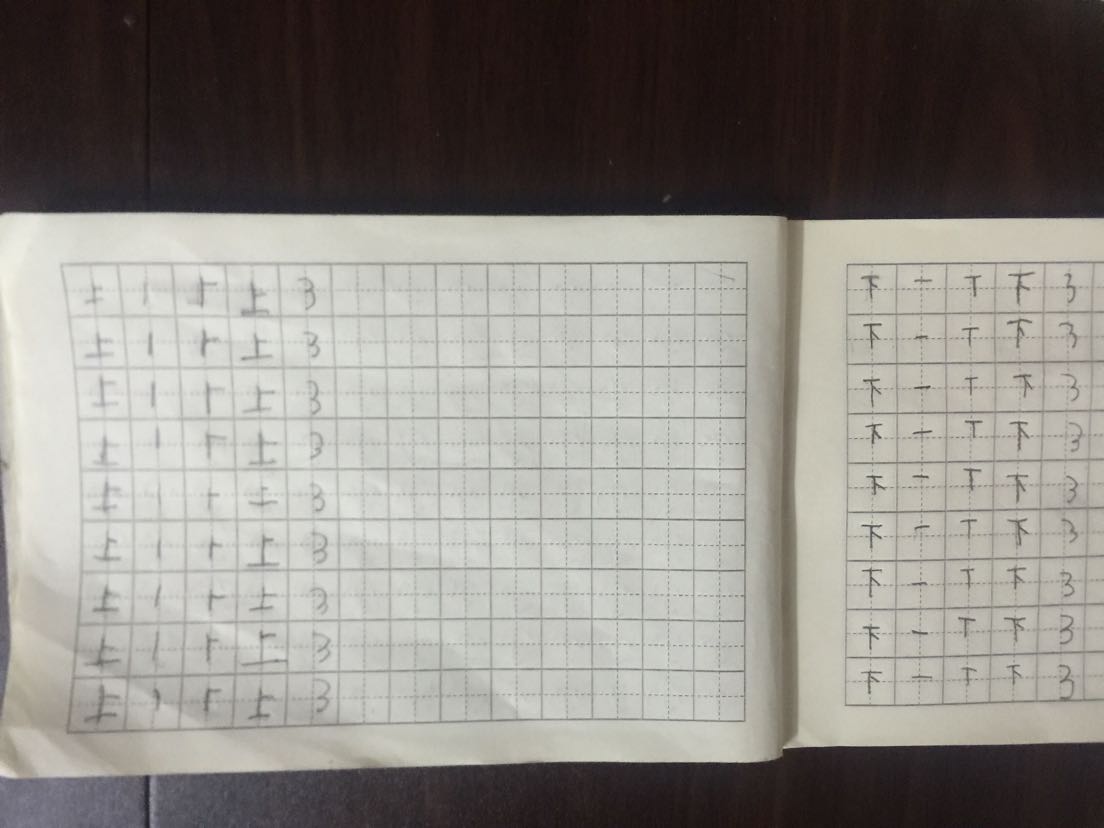 上 丨 ⺊ 上 3
上 丨 ⺊ 上 3
上 丨 ⺊ 上 3
上 丨 ⺊ 上 3
上 丨 ⺊ 上 3
上 丨 ⺊ 上 3
上 丨 ⺊ 上 3
上 丨 ⺊ 上 3
上 丨 ⺊ 上 3
下 一 丅 下 3
下 一 丅 下 3
下 一 丅 下 3
下 一 丅 下 3
下 一 丅 下 3
下 一 丅 下 3
下 一 丅 下 3
下 一 丅 下 3
下 一 丅 下 3